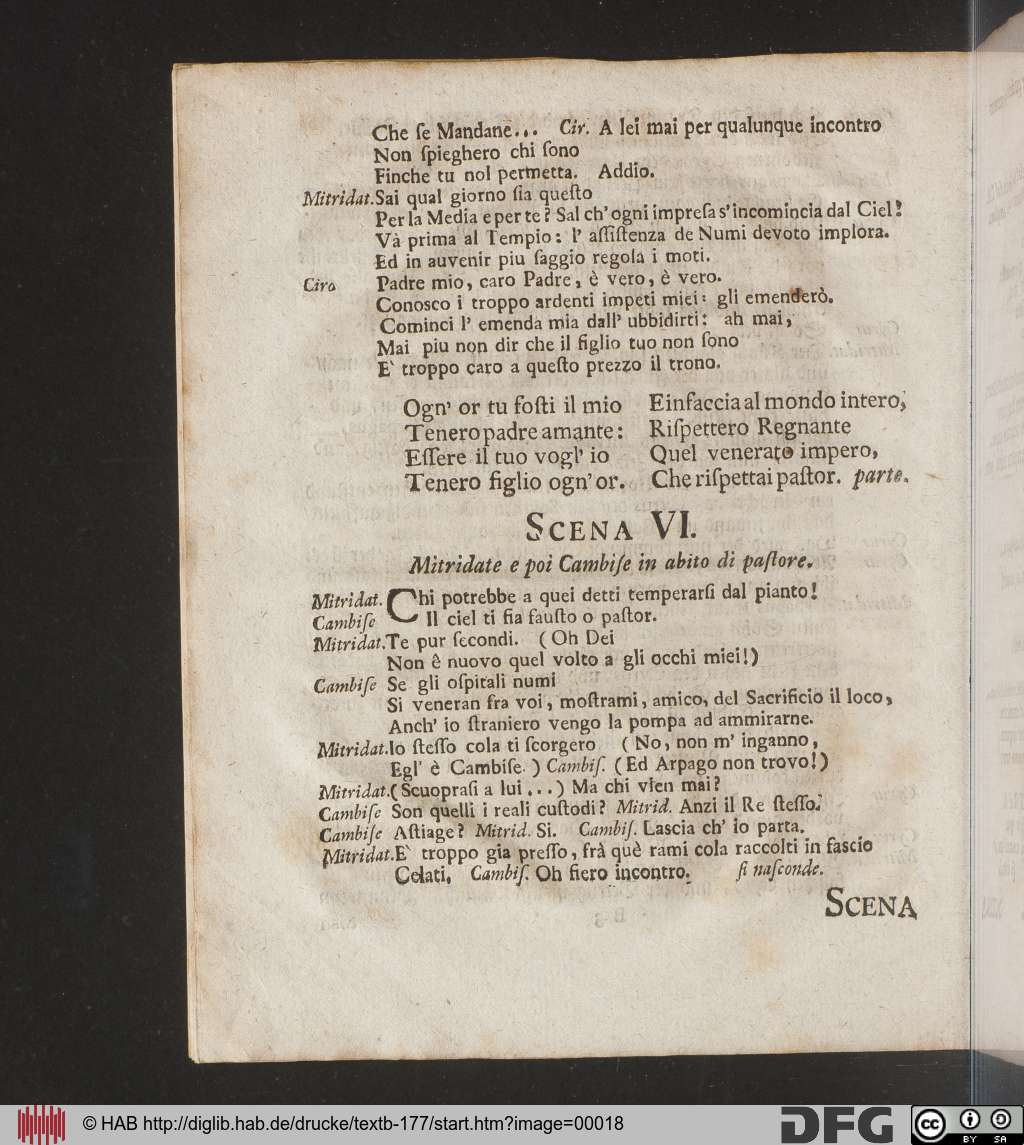 Che ſe Mandane... Cir. A lei mai per qualunque incontro
Non ſpieghero chi ſono
Finche tu nol permetta. Addio.
Mitridat. Sai qual giorno ſia queſto
Per la Media e per te? Sal ch' ogni impreſa s' incomincia dal Ciel!
Và prima al Tempio: l' aſſiſtenza de Numi devoto implora.
Ed in auvenir piu ſaggio regola i moti.
Ciro Padre mio, caro Padre, è vero, è vero.
Conosco i troppo ardenti impeti miei: gli emenderò.
Cominci l' emenda mia dall' ubbidirti: ah mai,
Mai piu non dir che il figlio tuo non ſono
E` troppo caro a queſto prezzo il trono.
Ogn' or tu foſti il mio
Tenero padre amante:
Eſſere il tuo vogl' io
Tenero figlio ogn' or.
Einfaccia al mondo intero,
Riſpettero Regnante
Quel venerato impero,
Che riſpettai paſtor. parte.
SCENA VI.
Mitridate e poi Cambiſe in abito di paſtore.
Mitridat. Chi potrebbe a quei detti temperarſi dal pianto!
Cambiſe Il ciel ti ſia fauſto o paſtor.
Mitridat. Te pur ſecondi. (Oh Dei
Non ê nuovo quel volto a gli occhi miei!)
Cambiſe Se gli oſpitali numi
Si veneran fra voi, moſtrami, amico, del Sacrificio il loco,
Anch' io ſtraniero vengo la pompa ad ammirarne.
Mitridat. Io ſteſſo cola ti ſcorgero (No, non m' inganno,
Egl' è Cambiſe.) Cambiſ. (Ed Arpago non trovo!)
Mitridat. (Scuopraſi a lui...) Ma chi vien mai?
Cambiſe Son quelli i reali cuſtodi? Mitrid. Anzi il Re ſteſſo.
Cambiſe Aſtiage? Mitrid. Si. Cambiſ. Lascia ch' io parta.
Mitridat. E` troppo gia preſſo, frà què rami cola raccolti in fascio
Celati. Cambiſ. Oh fiero incontro. ſi naſconde.
SCENA
© HAB http://diglib.hab.de/drucke/textb-177/start.htm?image=00018
DFG
cc
BY SA